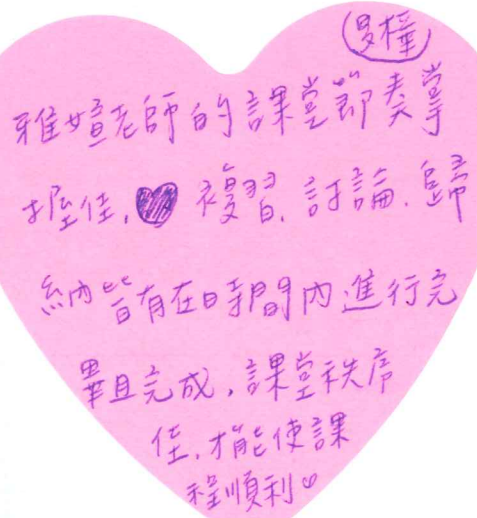 雅媗老師的課堂節奏掌
握佳,♥複習,討論,歸
納皆有在時間內進行完
畢且完成,課堂秩序
佳,才能使課
程順利♡